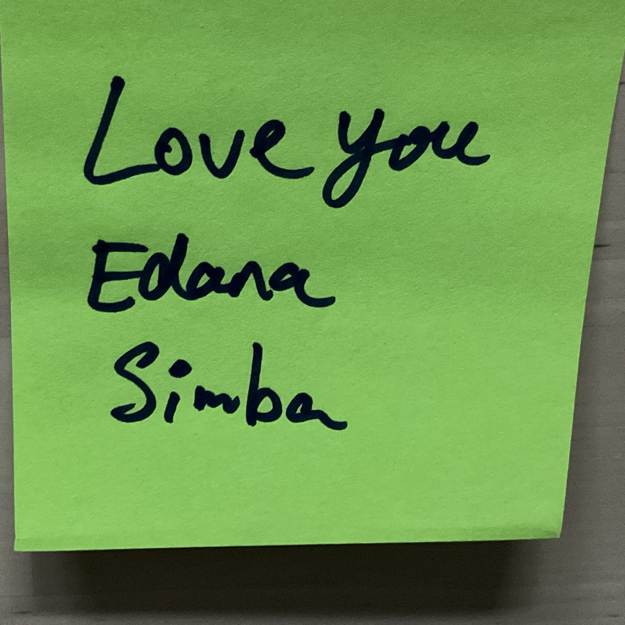 Love you
Edana
Simba